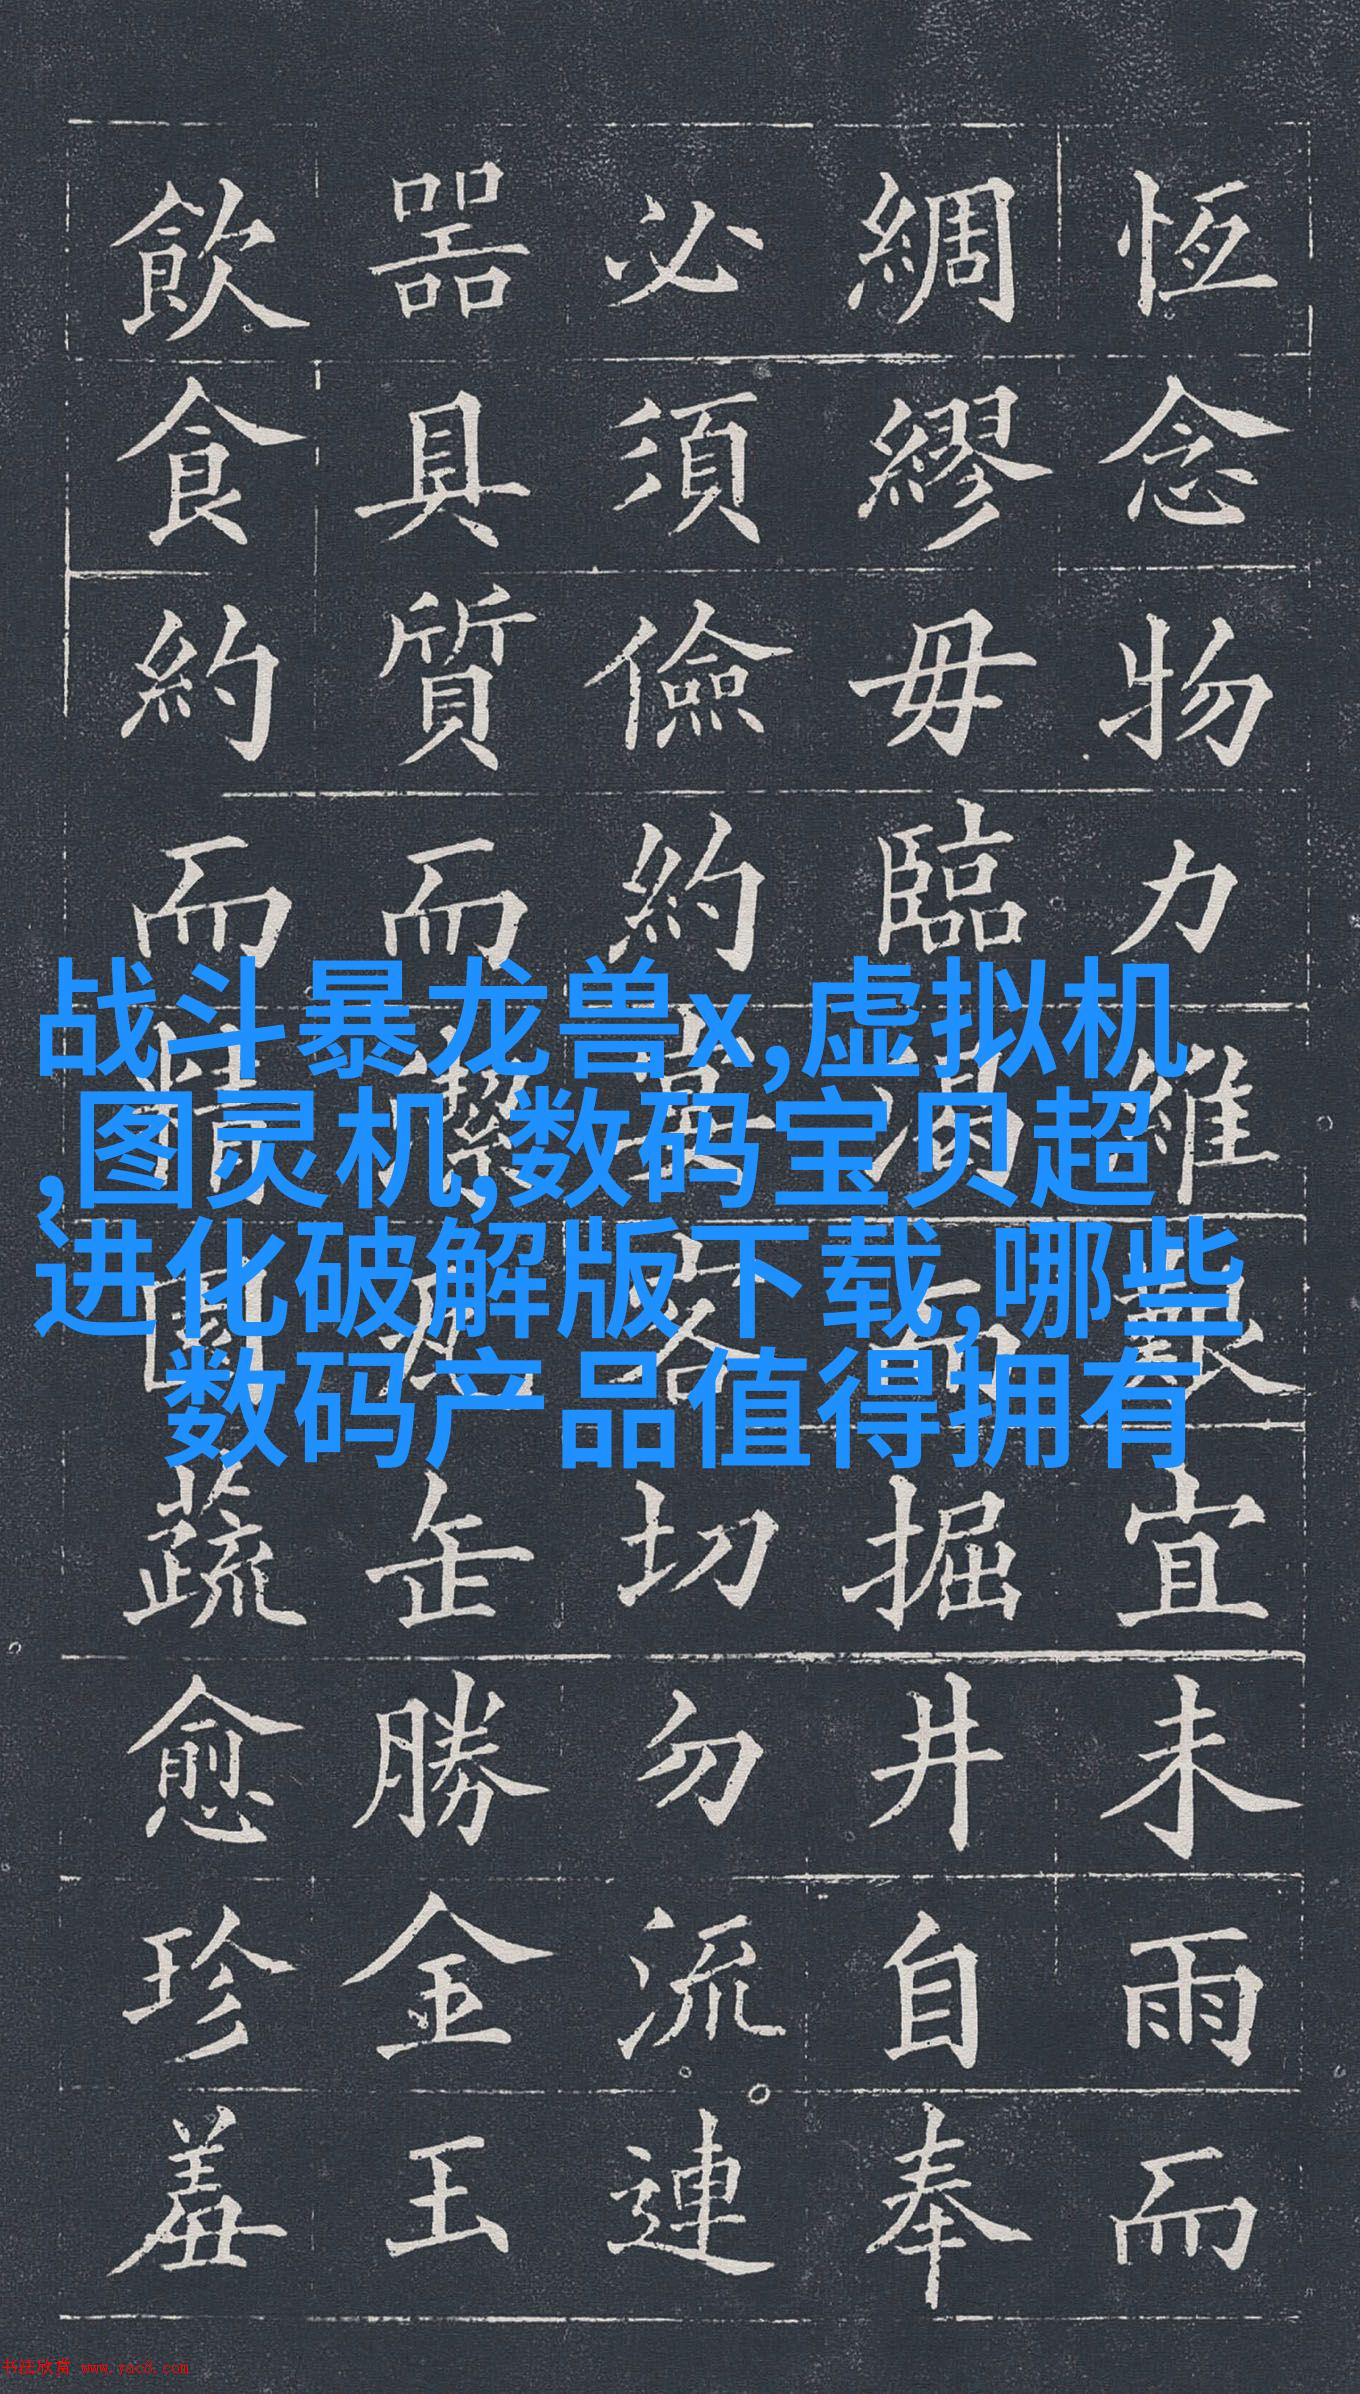 恆念物力維艱宜未雨而
綢繆毋臨渴而掘井自奉
必須儉約宴客切勿流連
器具質而潔瓦缶勝金玉
飲食約而精園蔬愈珍羞
战斗暴龙兽x,虚拟机
,图灵机,数码宝贝超
进化破解版下载,哪些
数码产品值得拥有
书法欣赏 www.yac8.com